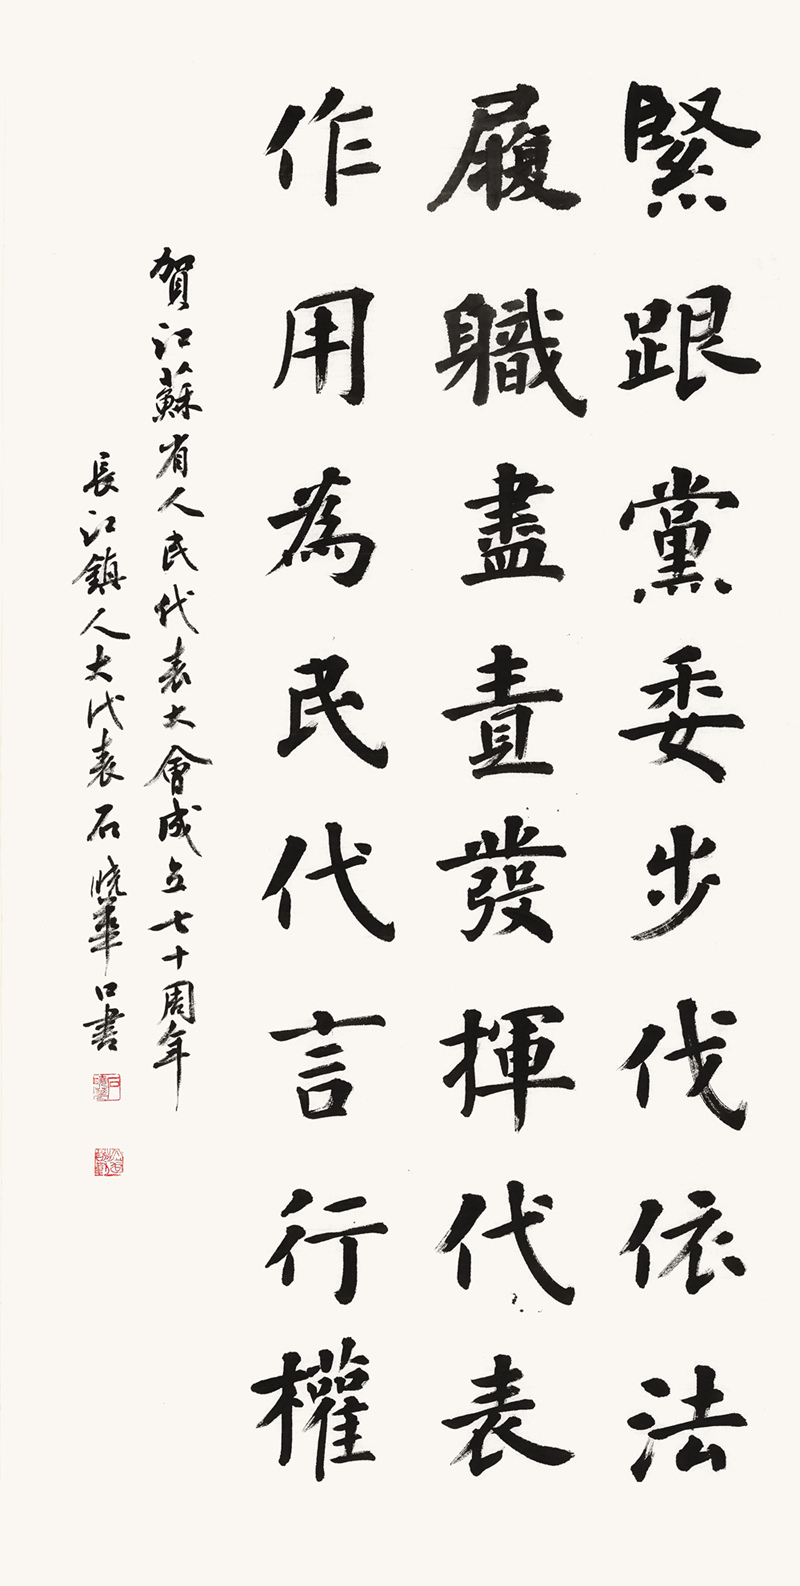 緊跟黨委步伐依法
履職盡責發揮代表
作用為民代言行權
賀江蘇省人民代表大會成立七十周年
長江鎮人大代表石曉華口書